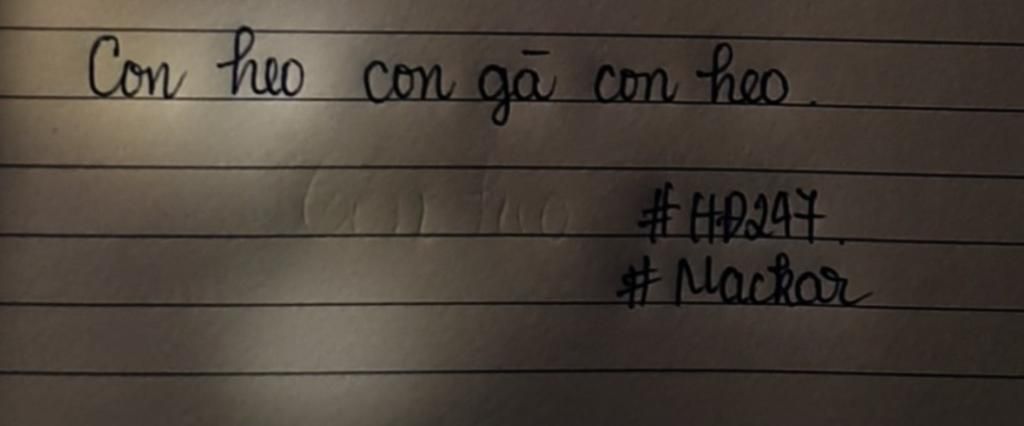 Con heo con gā con heo.
#HD247.
#Nackar